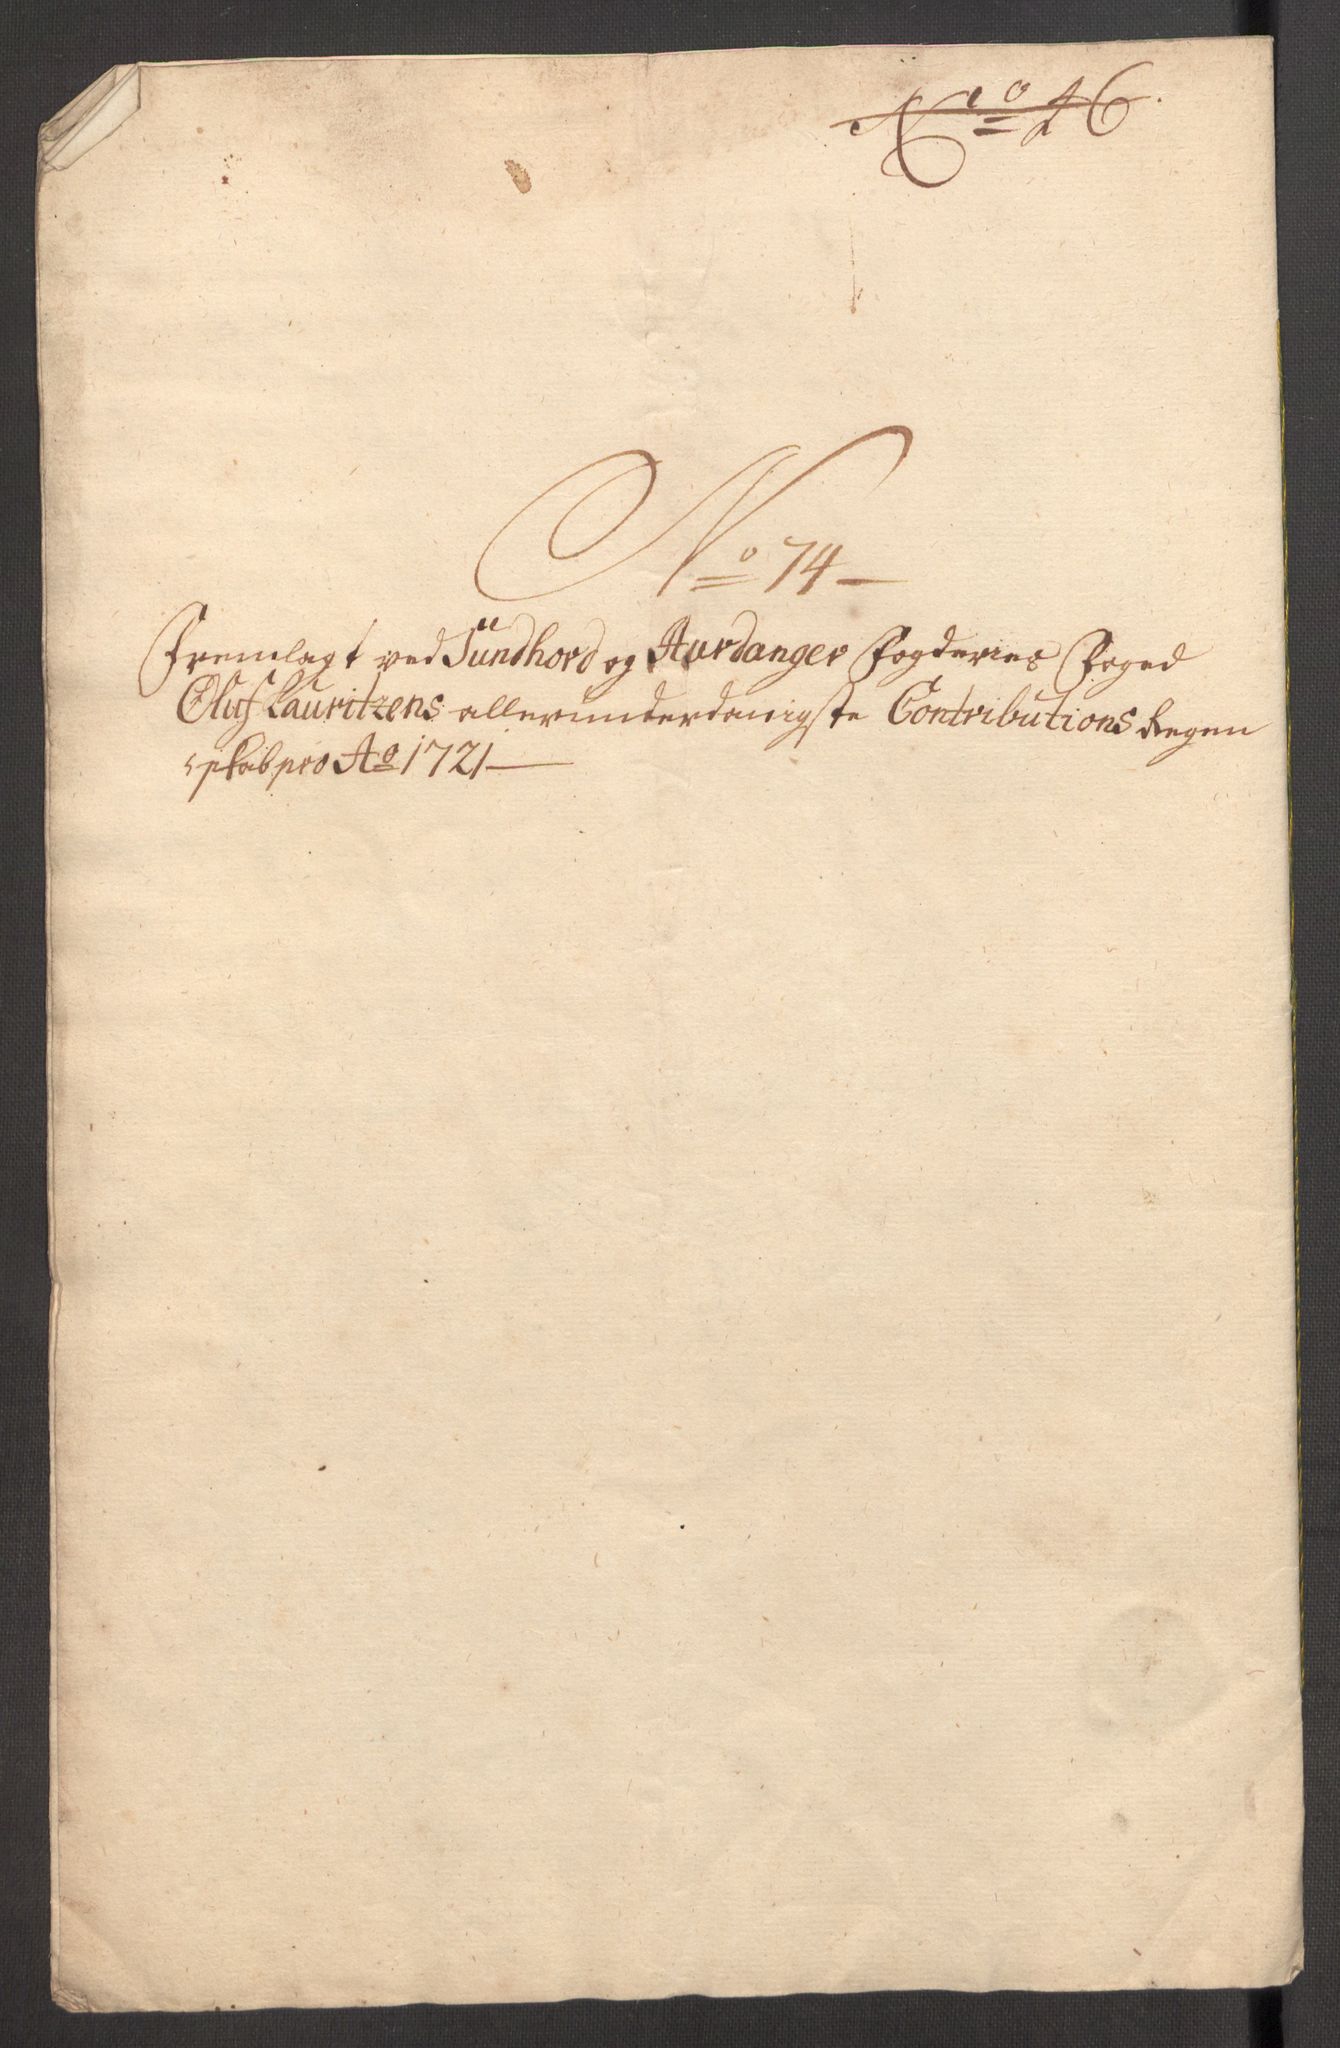 No 26.
No 74
Fremlagt ved Sundhord og Hardanger Fogderies Foged
Oluf Lauritzens allerunderdanigste Contributions Regen
skab pro Ao 1721